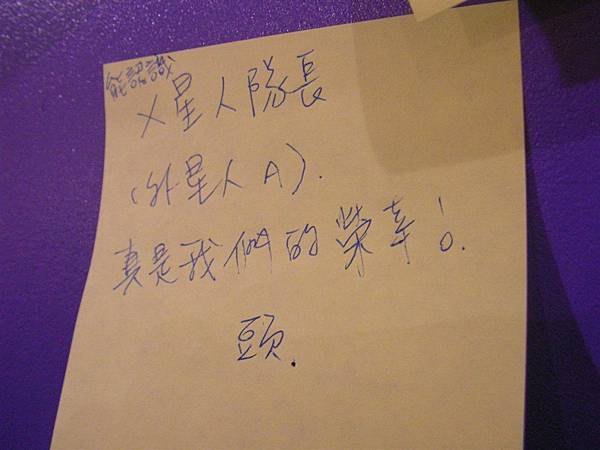 能認識
X星人隊長
(外星人A).
真是我們的榮幸!
頭.